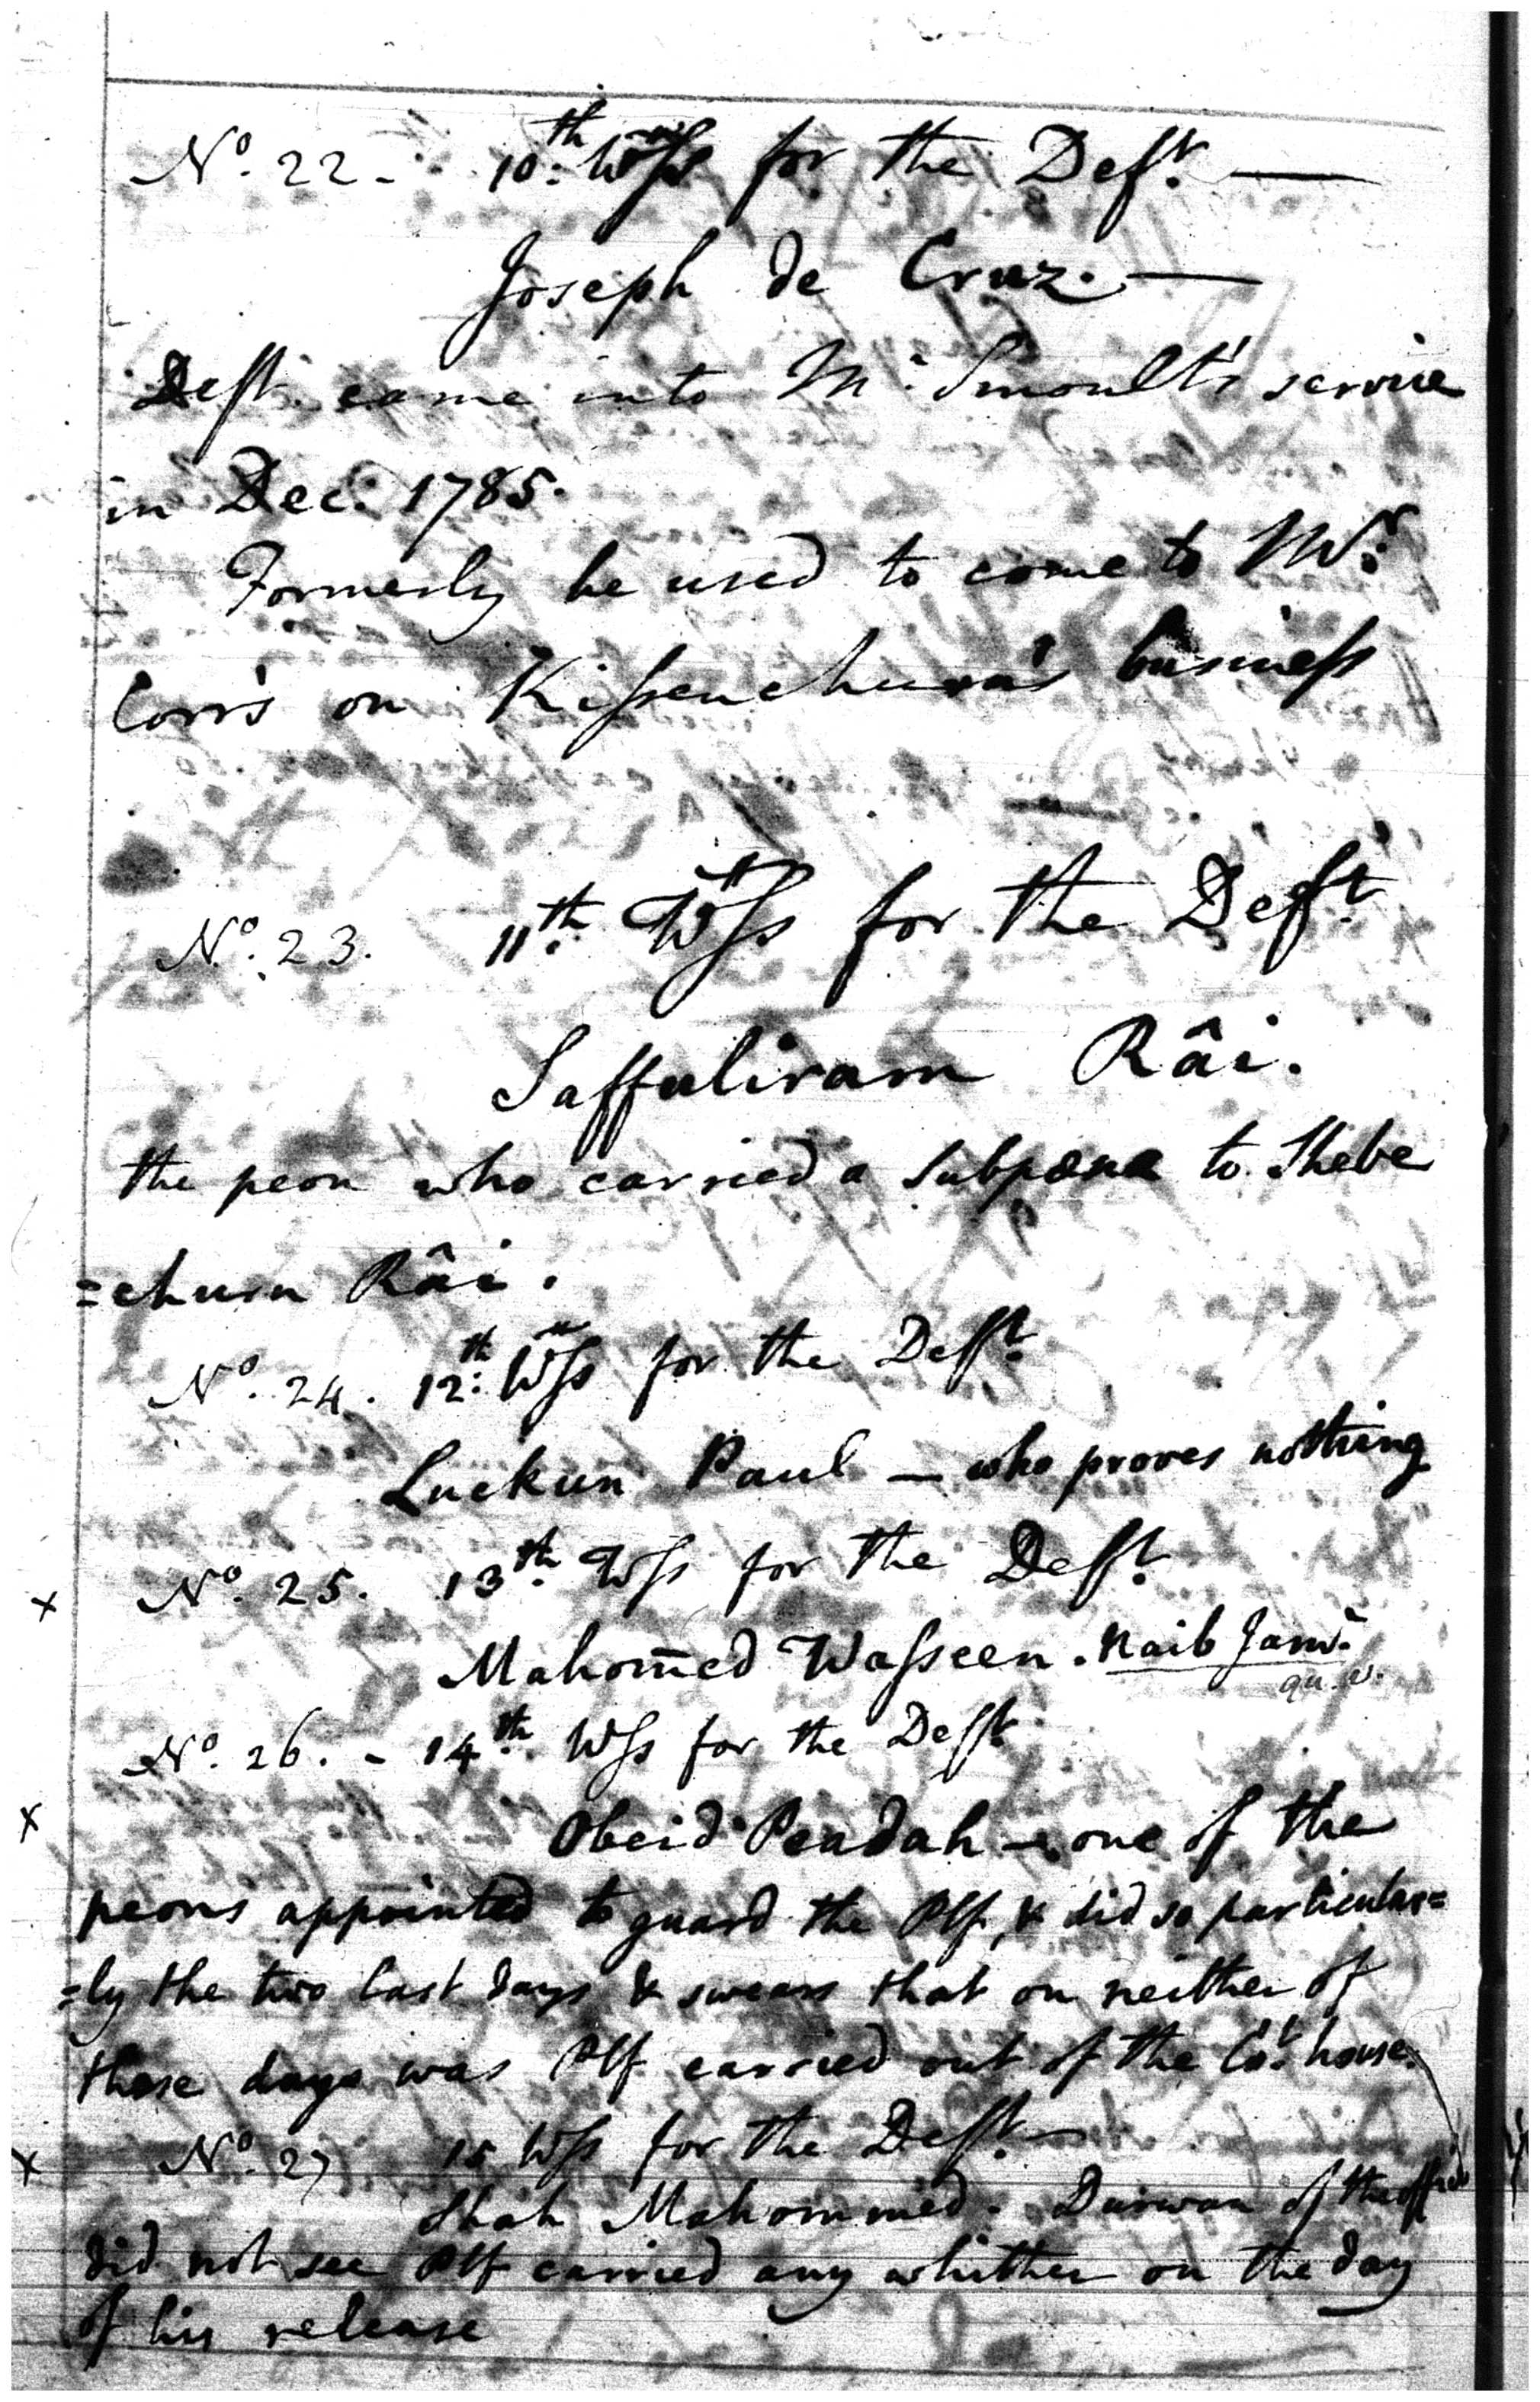 No. 22 - 10th. Wss for the Deft. —
Joseph de Cruz. —
Deft. came into Mr. Smoult's service
in Dec. 1785.
Formerly he used to come to Mr.
Corr's on Kissenchurn's business
No. 23. 11th. Wss for the Deft.
Saffuliram Râi.
the peon who carried a Subpœna to Shebe
=churn Râi.
No. 24. 12th. Wss for the Deft.
Luckun Paul — who proves nothing
x No. 25. 13th. Wss for the Deft.
Mahom̄ed Wasseen. Naib Jamr.
qu. v.
No. 26. - 14th. Wss for the Deft
x Obeid Peadah — one of the
peons appointed to guard the Plf, & did so particular=
=ly the two last days & swears that on neither of
those days was Plf carried out of the Cot. house.
x No. 27 15 Wss for the Deft. —
Shah Mahommed. Durwan of the office
did not see Plf carried any whither on the day
of his release